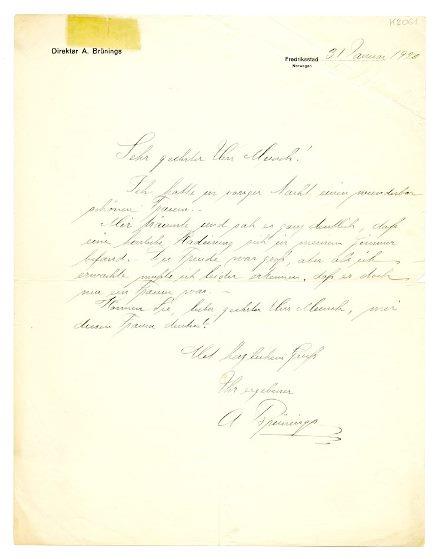 K2061
Direktør A. Brünings
Fredrikstad
Norwegen
31 Januar 1920
Sehr geehrter Herr Munch!
Ich hatte in voriger Nacht einen wunderbar
schönen Traum.
Mir träumte und sah es ganz deutlich, daß
eine herrliche sich in meinem Zimmer
befand. Die Freude war groß, aber als ich
erwachte mußte ich leider erkennen, daß es doch
nur ein Traum war –
Können Sie, sehr geehrter Herr Munch, mir
diesen Traum deuten?
Mit Gruß
Ihr ergebener
A Brünings